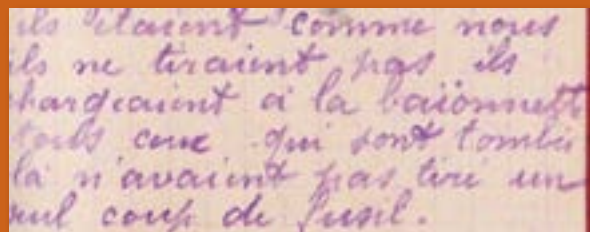 ils étaient comme nous
ils ne tiraient pas ils
chargeaient à la baïonnett
touts ceux qui sont tombés
là n'avaient pas tiré un
seul coup de fusil.